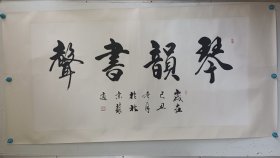 琴韻書聲
歲在
己丑
冬月
於北
京蘇